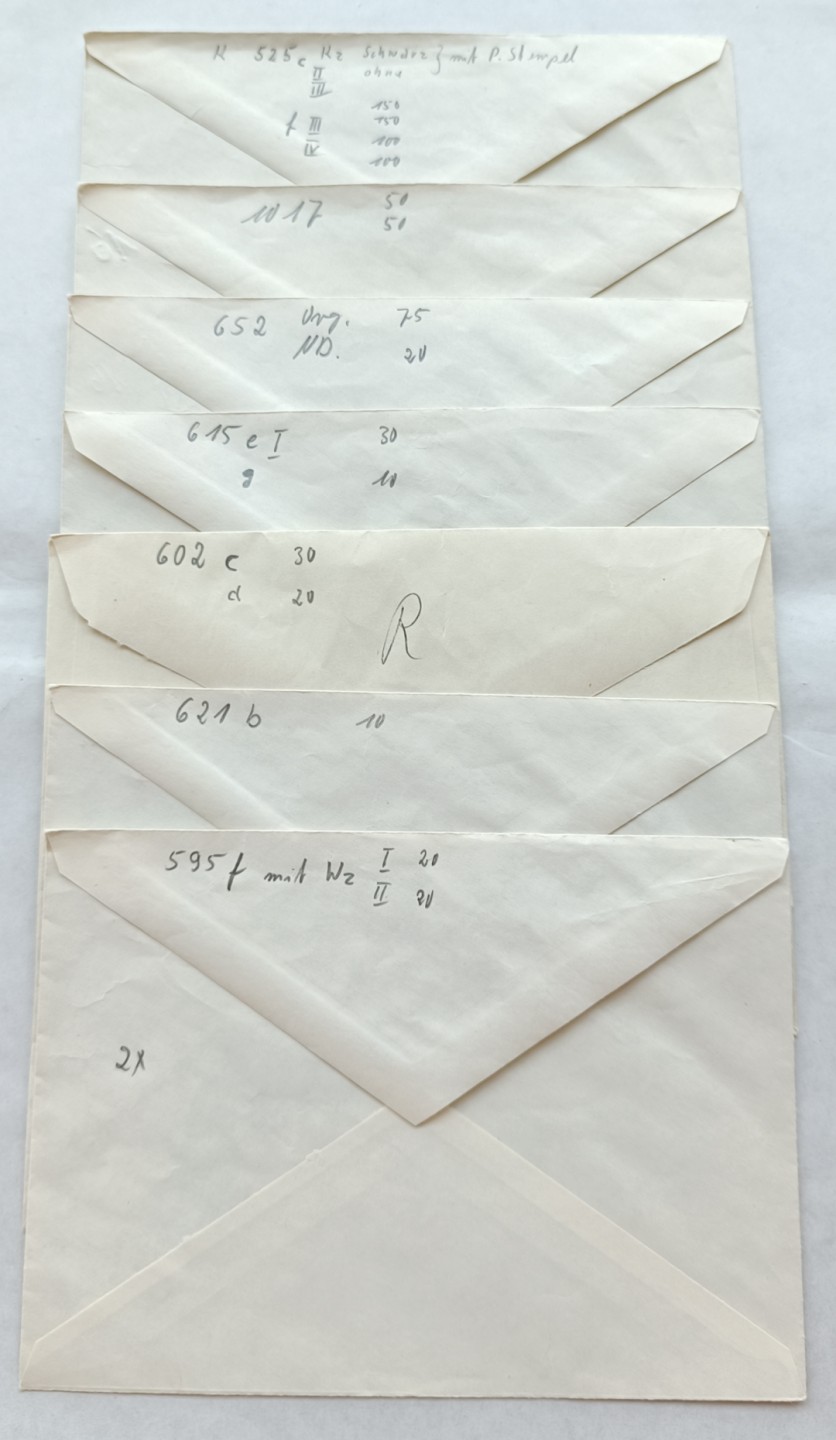 K 525 c Kz Schwarz } mit P. Stempel
II ohne
III
150
f III 150
IV 100
100
1017 50
50
652 Org. 75
ND. 20
615 e I 30
g 10
602 c 30
d 20
R
621 b 10
595 f mit Wz I 20
II 20
2x